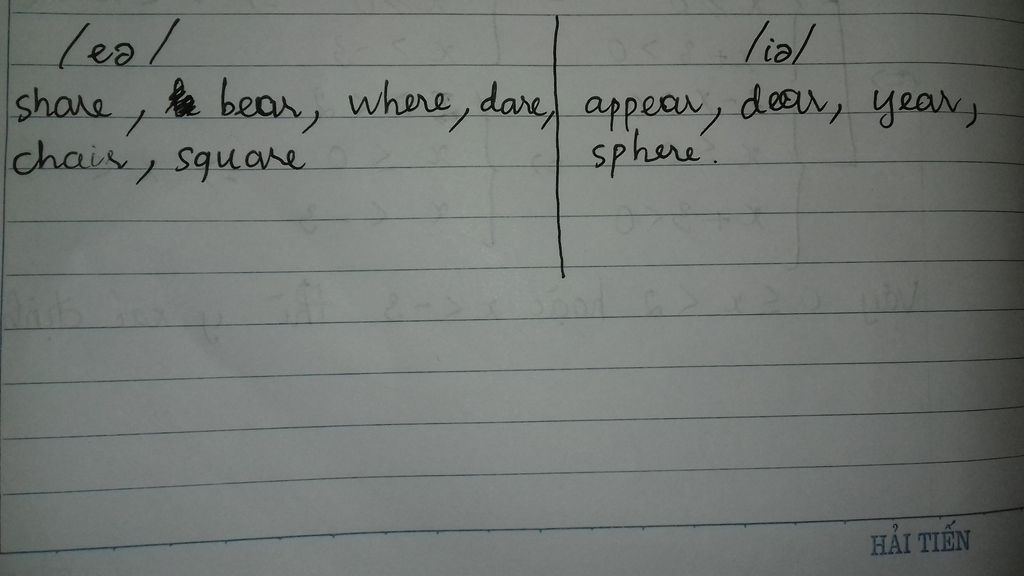 /eə/ /iə/
share, bear, where, dare, appear, dear, year,
chair, square sphere.
HẢI TIẾN